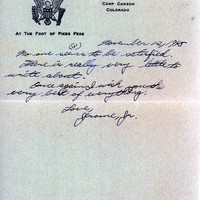 CAMP CARSON
COLORADO
AT THE FOOT OF PIKES PEAK
(2) November 12, 1945
No one seems to be satisfied.
There is really very little to
write about.
Once again I wish you the
very best of everything.
Love
Jerome, Jr.